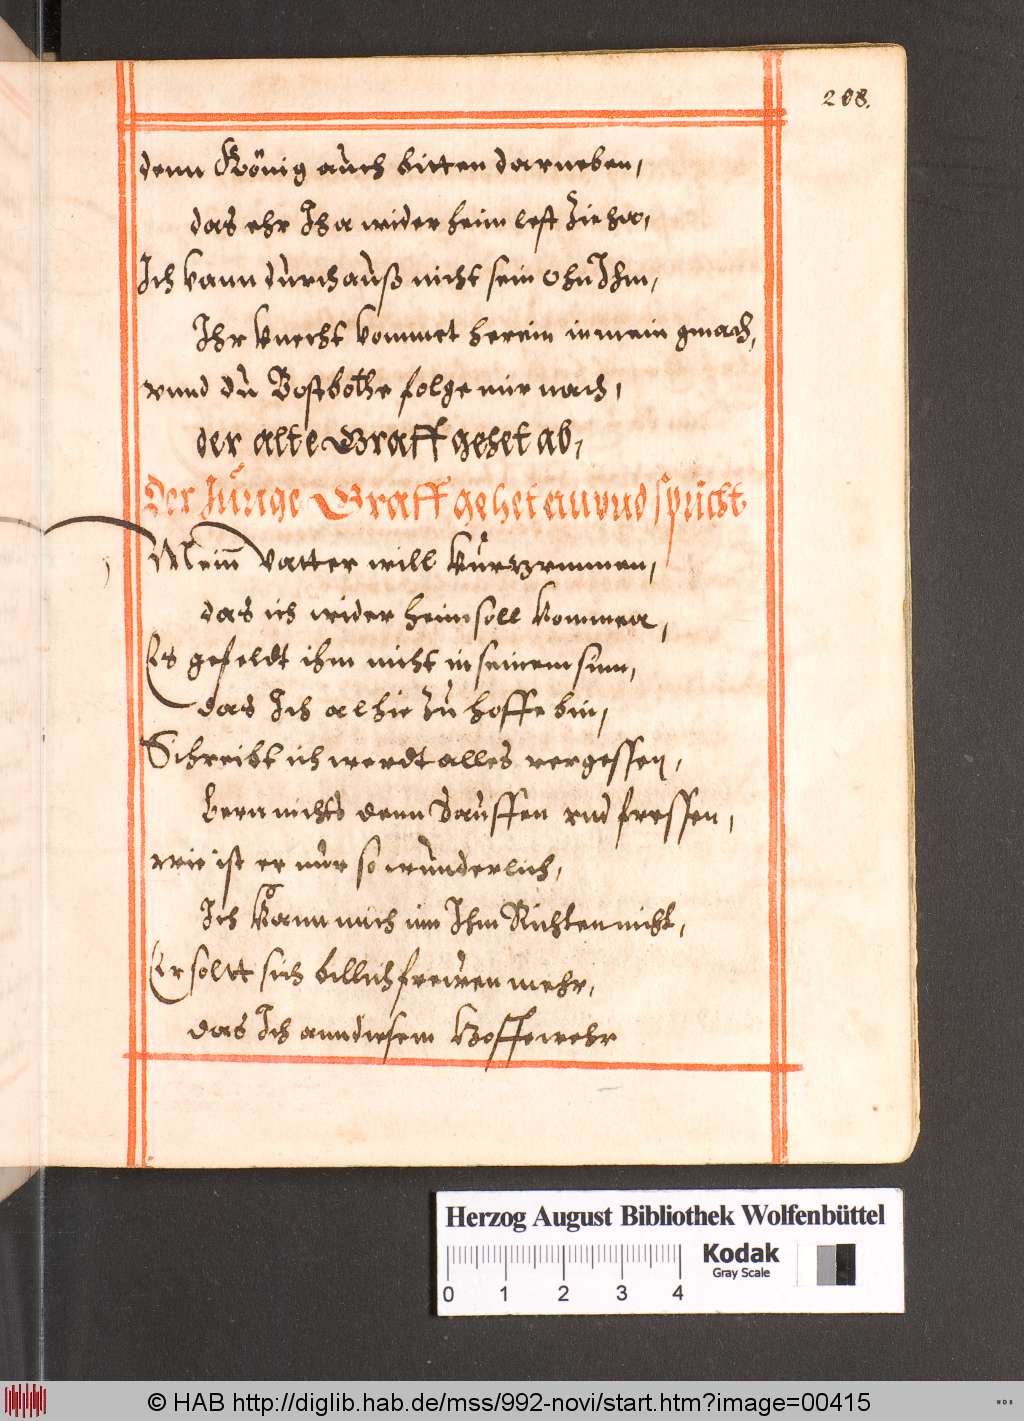 208.
denn König auch bitten darneben,
das ehr Ihn wider heim lest Ziehen,
Ich kann durchauß nicht sein ohn Ihm,
Ihr Knecht kommet herein in mein gmach,
vnnd du Bostbothe folge mir nach,
der alte Graff gehet ab,
Der Junge Graff gehet ein vnd spricht
Mein Vatter will kurtzrummen,
das ich wider heim soll kommen,
Es gefeldt ihm nicht in seinem sinn,
das Ich alhie Zu hoffe bin,
Schreibt ich werdt alles vergessen,
lern nichts denn Sauffen vnd fressen,
wie ist er nur so wunderlich,
Ich kann mich inn Ihm Richten nicht,
Er soltt sich billich freiwen mehr,
das Ich ann diesem Hoffe wehr
Herzog August Bibliothek Wolfenbüttel
Kodak
Gray Scale
0 1 2 3 4
© HAB http://diglib.hab.de/mss/992-novi/start.htm?image=00415